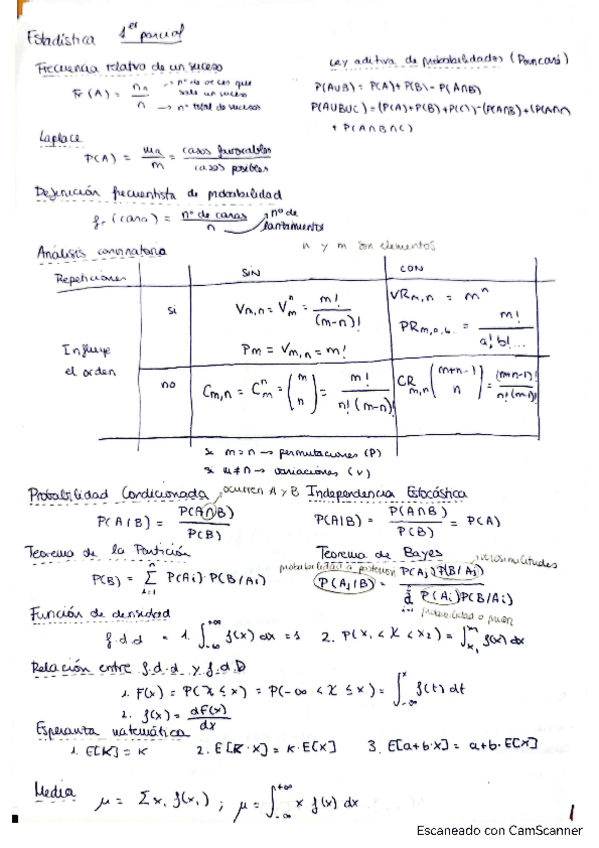 Estadística 1er parcial
Frecuencia relativa de un suceso
Fr (A) = nA / n → nº de veces que sale un suceso → nº total de sucesos
Ley aditiva de probabilidades (Poincaré)
P(A∪B) = P(A) + P(B) - P(A∩B)
P(A∪B∪C) = (P(A)+P(B)+P(C))-(P(A∩B)+(P(A∩
+ P(A∩B∩C)
Laplace
P(A) = ma / m = casos favorables / casos posibles
Definición frecuentista de probabilidad
fr (cara) = nº de caras / n → nº de lanzamientos
Análisis combinatoria
n y m son elementos
Repeticiones SIN CON
Influye el orden
si
Vm,n = V^n_m = m! / (m-n)!
Pm = Vm,n = m!
VRm,n = m^n
PRm,a,b.. = m! / a! b! ...
no
Cm,n = C^n_m = (m n) = m! / n! (m-n)!
CRm,n (m+n-1 n) = (m+n-1)! / n! (m-1)!
si m=n → permutaciones (P)
si n≠n → variaciones (V)
Probabilidad Condicionada → ocurren A y B
P(A/B) = P(A∩B) / P(B)
Independencia Estocástica
P(A|B) = P(A∩B) / P(B) = P(A)
Teorema de la Partición
P(B) = Σ P(Ai)·P(B/Ai)
i=1
Teorema de Bayes
probabilidad a posteriori
verosimilitudes
P(Aj/B) = P(Aj) P(B/Aj) / P(Ai)P(B/Ai)
i=1 probabilidad a priori
Función de densidad
f.d.d = 1. ∫-∞ +∞ f(x) dx = 1 2. P(x1 < X < x2) = ∫ f(x) dx
Relación entre f.d.d. y f.d.D
1. F(x) = P(X ≤ x) = P(-∞ < X ≤ x) = ∫-∞ x f(t) dt
2. f(x) = dF(x) / dx
Esperanza matemática
1. E[K] = K 2. E[K·X] = K·E[X] 3. E[a+b·X] = a+b·E[X]
Media μ = Σxi f(xi) ; μ = ∫-∞ +∞ x f(x) dx
1
Escaneado con CamScanner